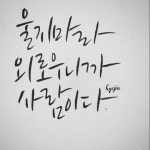 울지마라
외로우니까
사람이다.